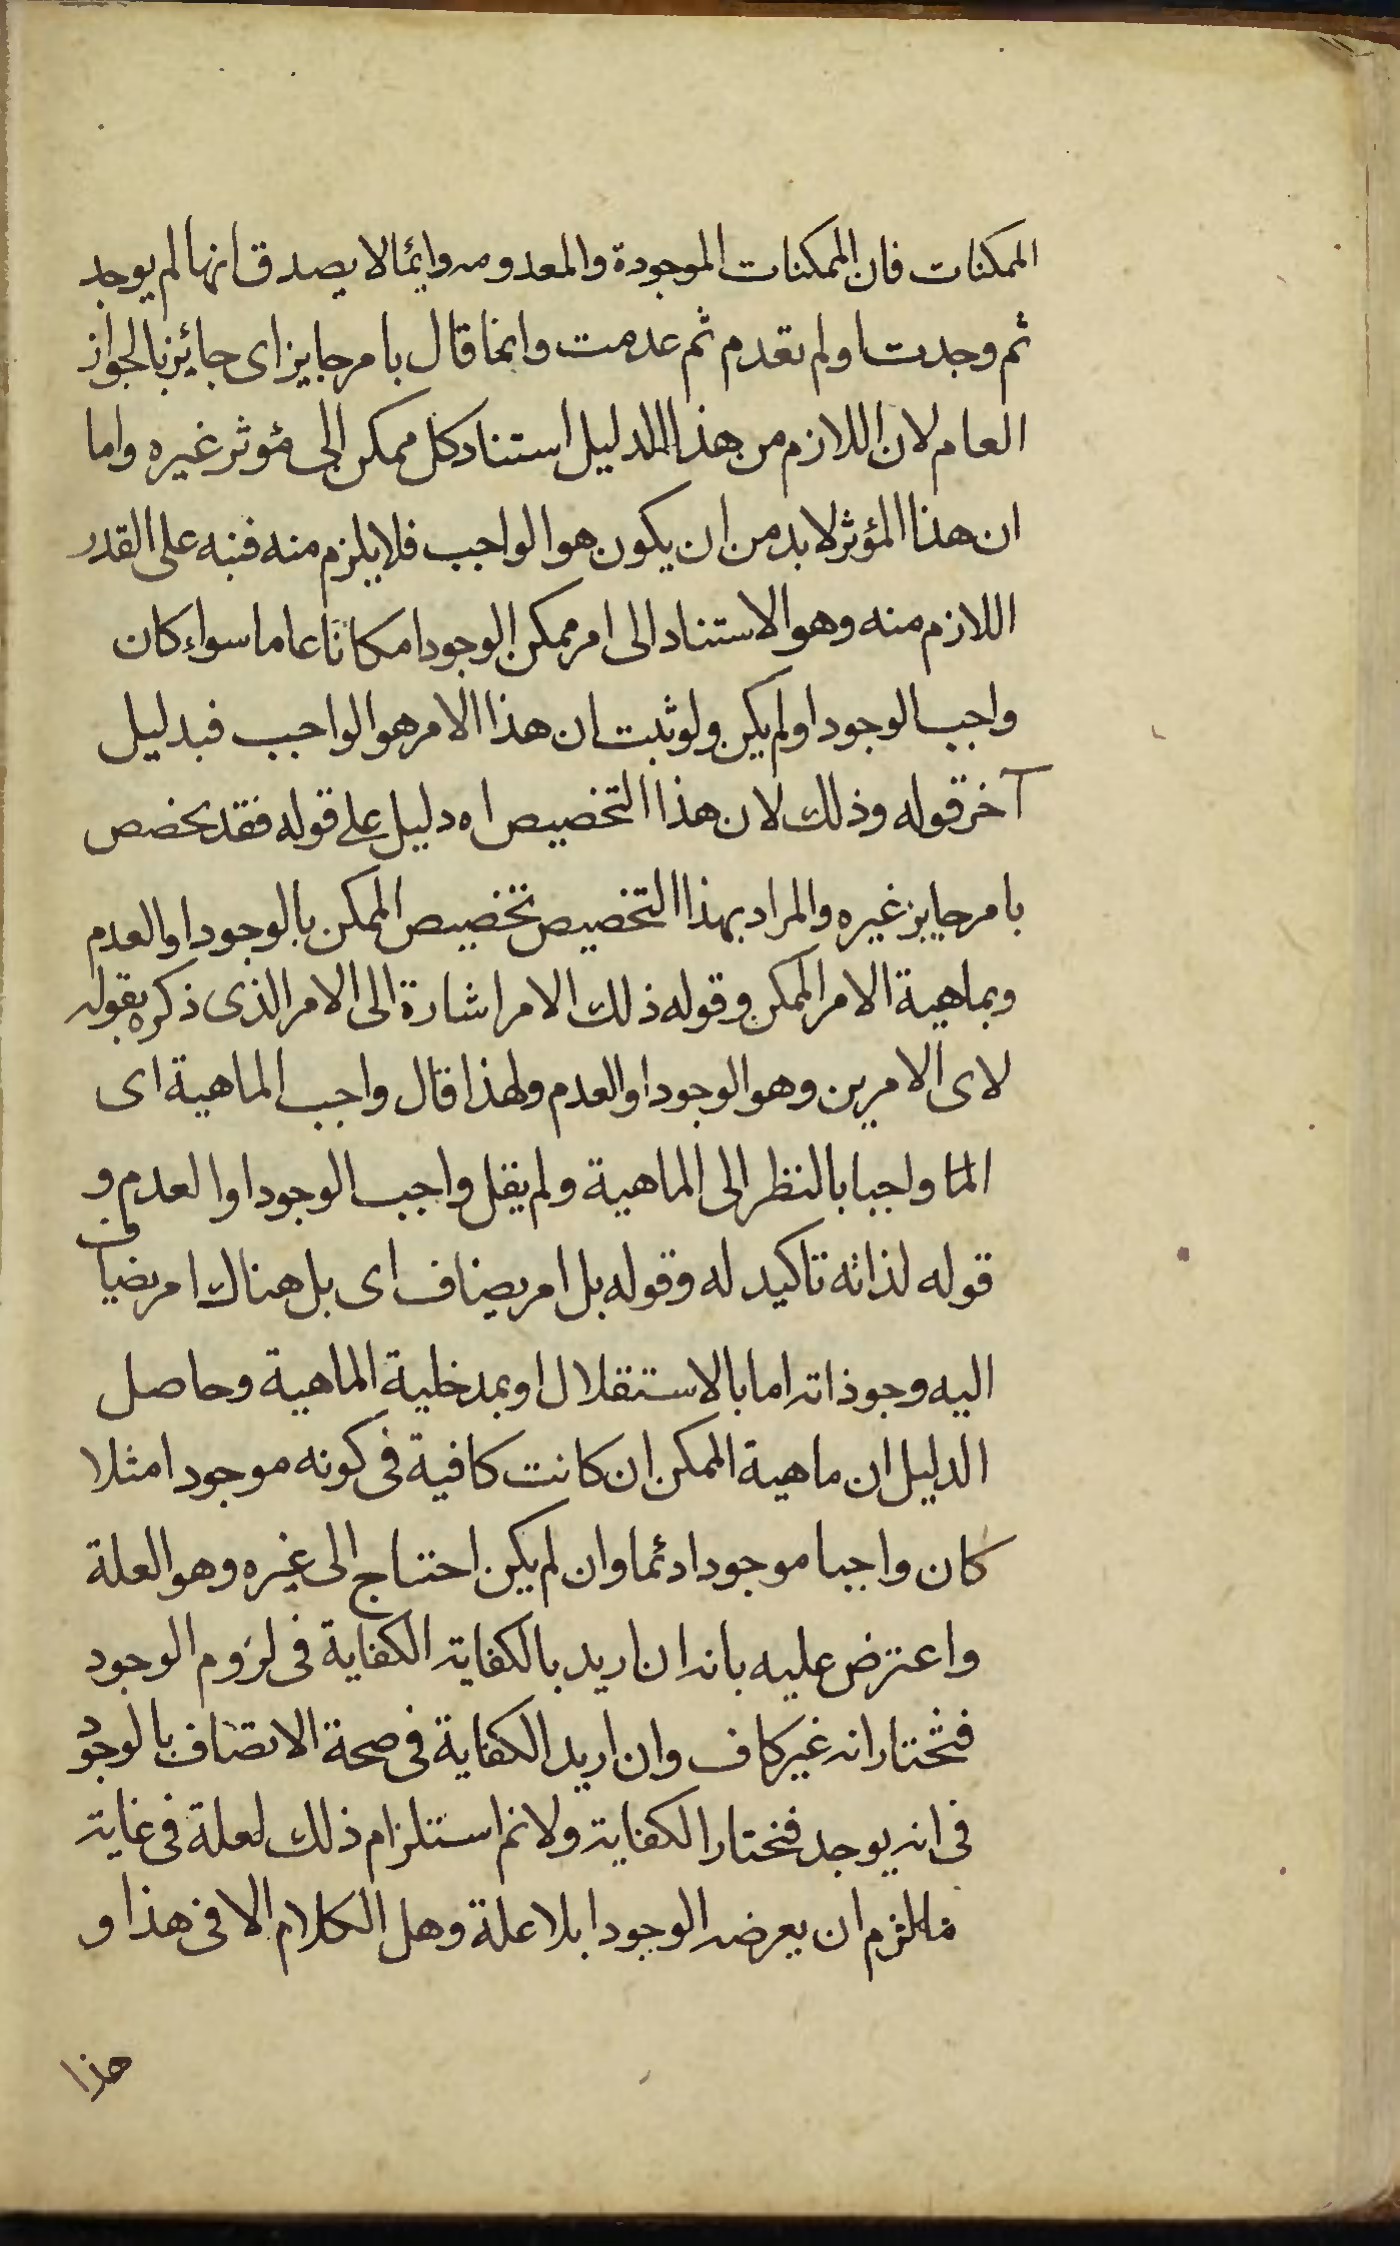 الممكنات فان الممكنات الموجودة والمعدومه دايما لا يصدق انها لم يوجد
ثم وجدت او لم تعدم ثم عدمت وانما قال بامر جايز اى جائز بالجواز
العام لان اللازم من هذا الدليل استناد كل ممكن الى مؤثر غيره واما
ان هذا المؤثر لا بد من ان يكون هو الواجب فلا يلزم منه فنبه على القدر
اللازم منه وهو الاستناد الى امر ممكن الوجود امكانا عاما سواء كان
واجب الوجود او لم يكن ولو ثبت ان هذا الامر هو الواجب فبدليل
آخر قوله وذلك لان هذا التخصيص اه دليل على قوله فقد يخصص
بامر جايز غيره والمراد بهذا التخصيص تخصيص الممكن بالوجود او العدم
وبماهية الامر الممكن وقوله ذلك الامر اشارة الى الامر الذى ذكره بقوله
لاى الامرين وهو الوجود او العدم ولهذا قال واجب الماهية اى
امّا واجبا بالنظر الى الماهية ولم يقل واجب الوجود او العدم و
قوله لذاته تاكيد له وقوله بل امر يضاف اى بل هناك امر يضاف
اليه وجود ذاته اما بالاستقلال او بمدخلية الماهية وحاصل
الدليل ان ماهية الممكن ان كانت كافية فى كونه موجودا مثلا
كان واجبا موجودا دئما وان لم يكن احتاج الى غيره وهو العلة
واعترض عليه بانه ان اريد بالكفاية الكفاية فى لزوم الوجود
فنختار انه غير كاف وان اريد الكفاية فى صحة الاتصاف بالوجود
فى انه يوجد فنختار الكفاية ولانم استلزام ذلك لعلة فى غاية
ما لزم ان يعرضه الوجود ابلا علة وهل الكلام الا فى هذا و
هذا